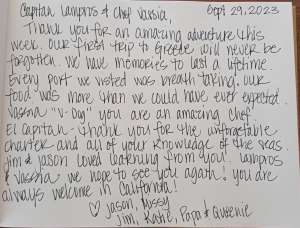 Capitan Lampros & Chef Vassia, Sept 29, 2023
Thank you for an amazing adventure this
week. Our first trip to Greece will never be
forgotten. We have memories to last a lifetime
Every port we visted was breath taking. Our
food was more than we could have ever expected.
Vassia "V-Dog" you are an amazing chef!
El Capitan - thank you for the unforgetable
charter and all of your knowledge of the seas.
Jim & Jason loved learning from you. Lampros
& Vassha we hope to see you again! You are
always welcome in California!
♡ Jason, Missy
Jim, Katie, Papa & Queenie